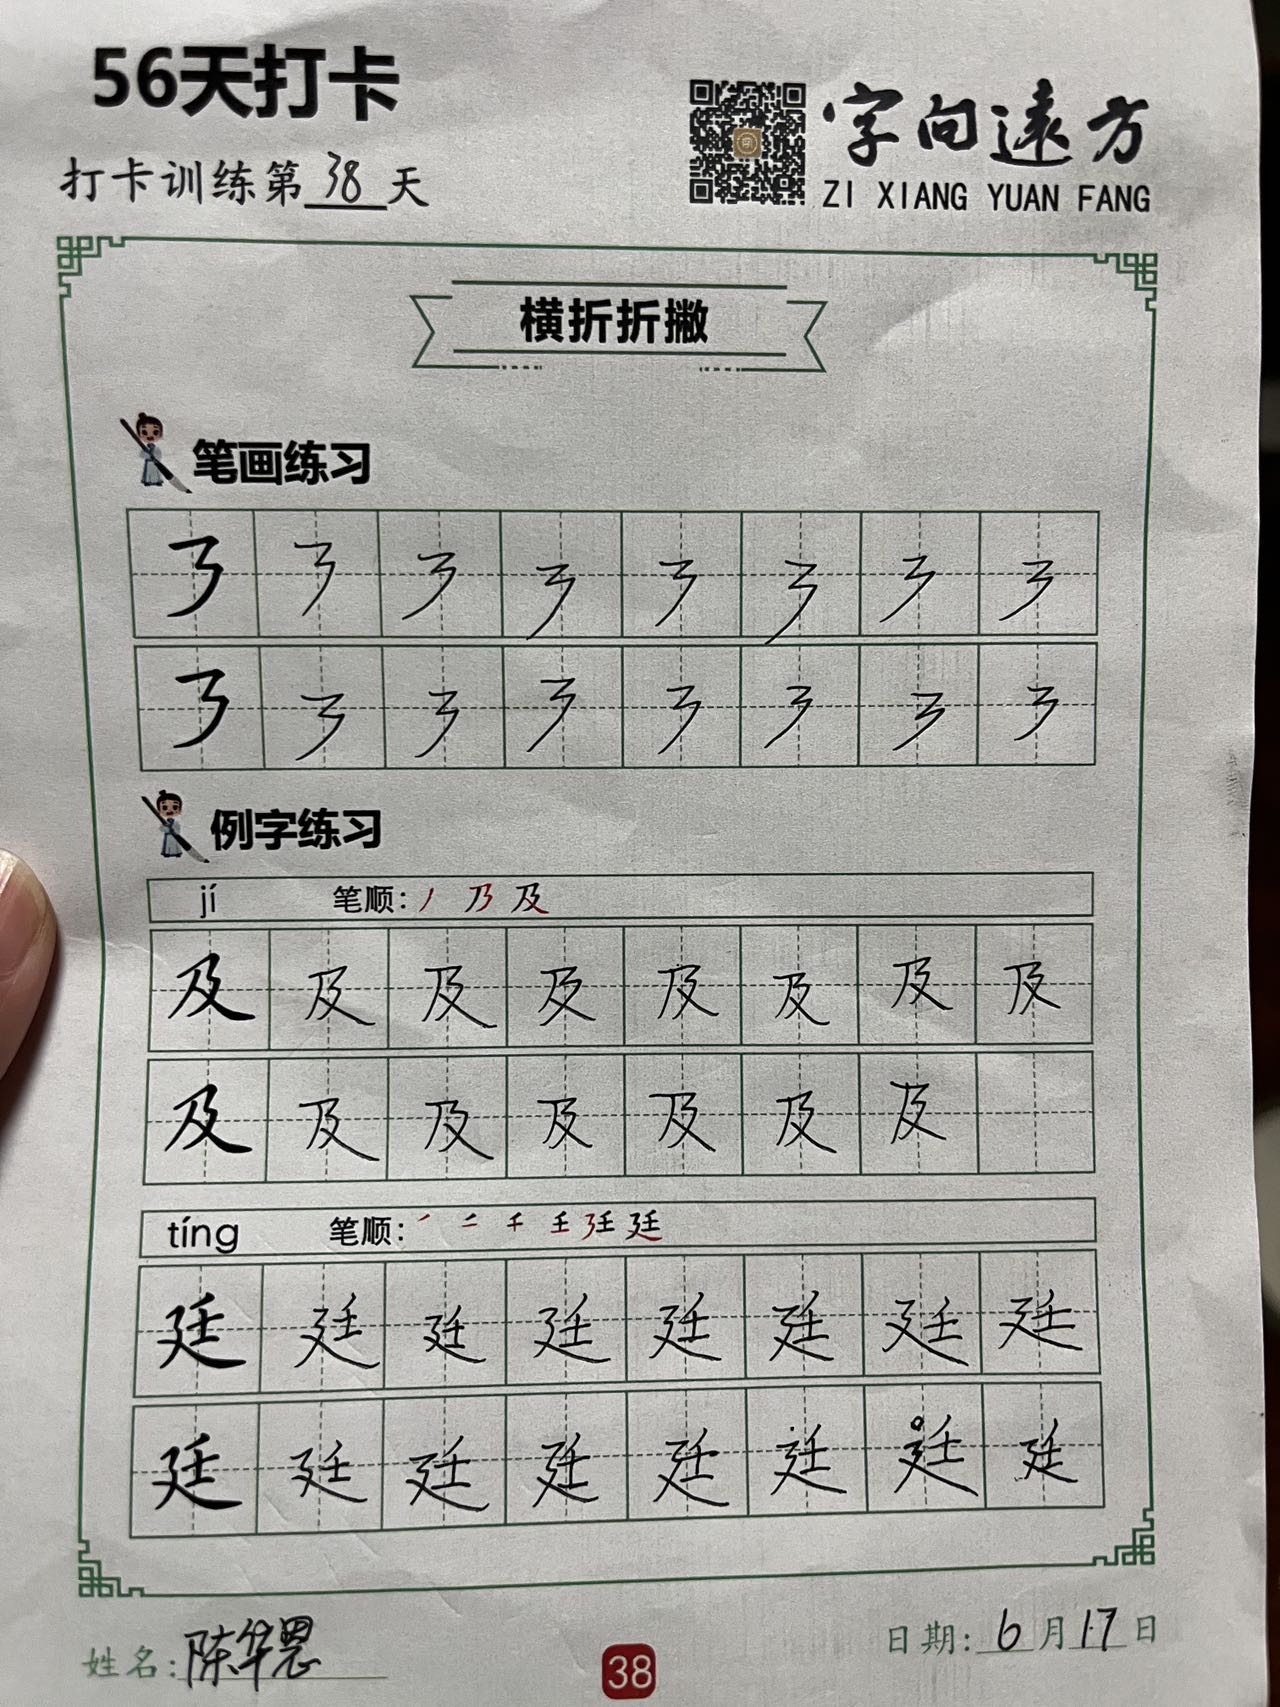 56天打卡
字向遠方
ZI XIANG YUAN FANG
打卡训练第38天
横折折撇
笔画练习
㇋ ㇋ ㇋ ㇋ ㇋ ㇋ ㇋ ㇋
㇋ ㇋ ㇋ ㇋ ㇋ ㇋ ㇋ ㇋
例字练习
jí 笔顺: 丿 乃 及
及 及 及 及 及 及 及 及
及 及 及 及 及 及 及
tíng 笔顺: ㇒ 二 千 壬 廷
廷 廷 廷 廷 廷 廷 廷 廷
廷 廷 廷 廷 廷 廷 廷 廷
姓名:陈华恩
38
日期:6月17日